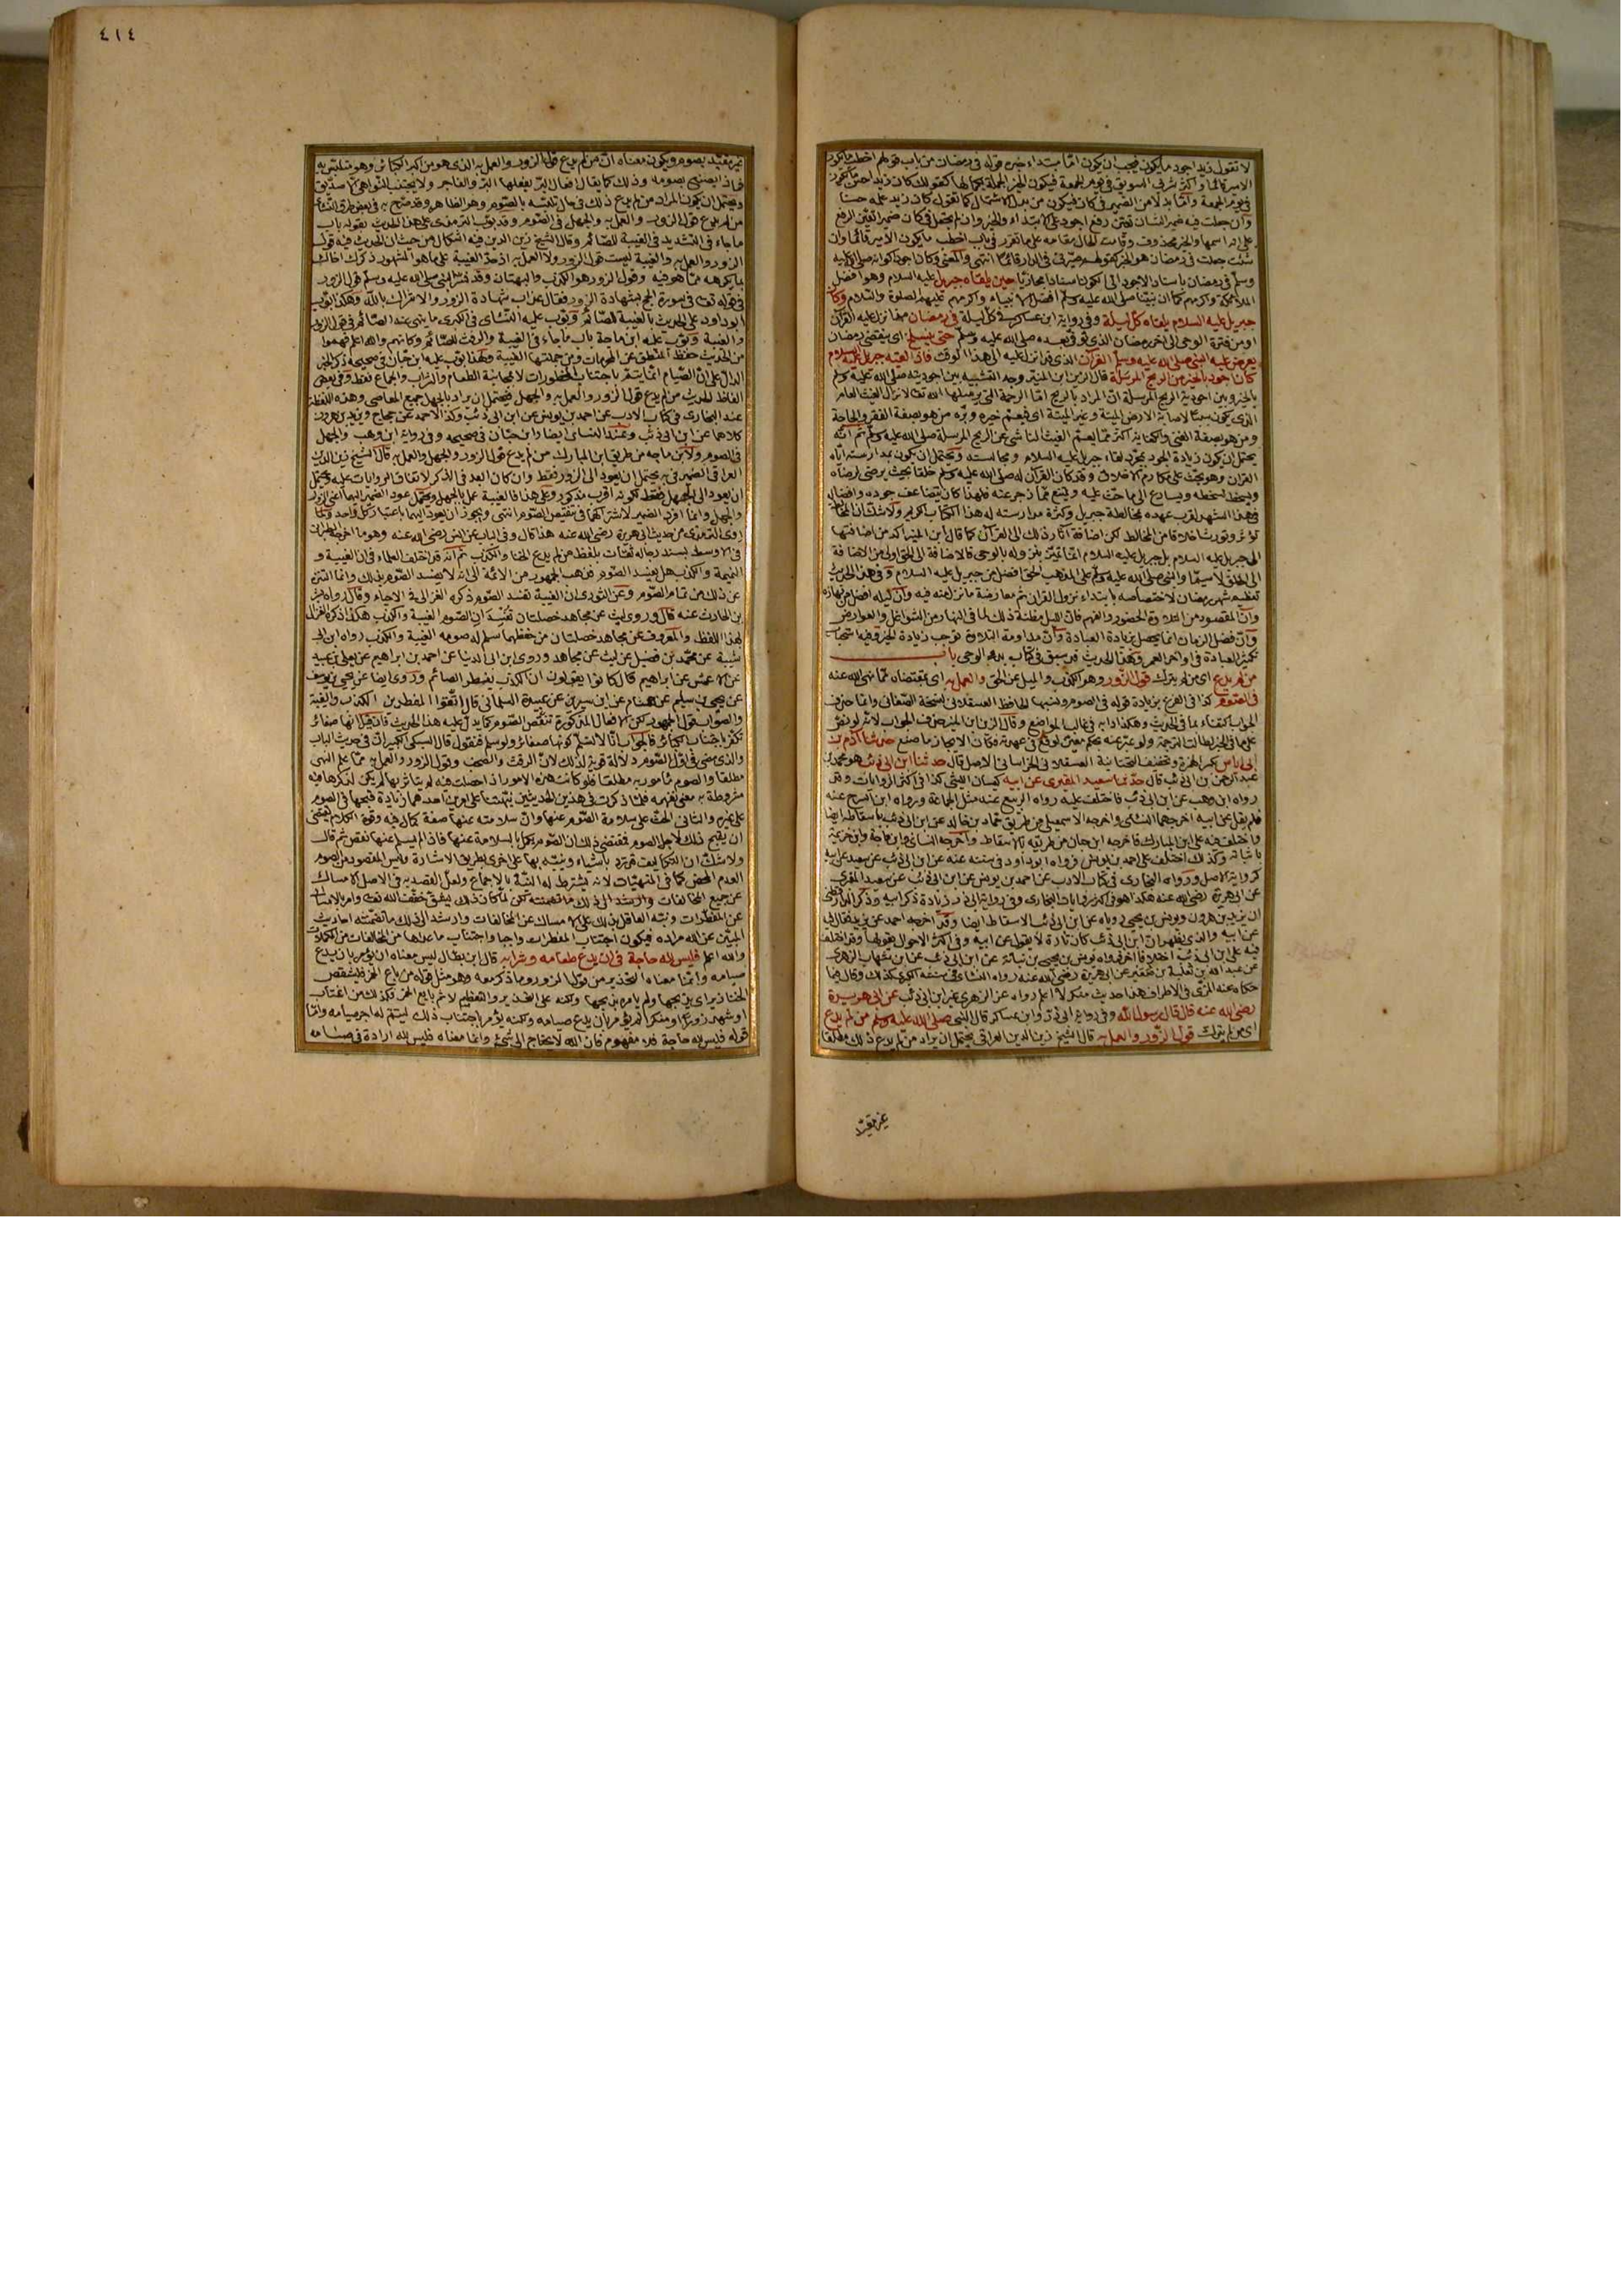 ٤١٤
لا تقول زيد اجود ما يكون فيجب ان يكون اما مبتداء خبره قوله في رمضان من باب قولهم اخطب ما يكون
الامير قائما واكثر شربي السويق في يوم الجمعة فيكون الخبر الجملة بكمالها كقولك كان زيد احسن ما يكون
في يوم الجمعة واما بدلا من الضمير في كان فيكون من بدل الاشتمال كما تقول كان زيد علمه حسنا
وان جعلت فيه ضمير الشان تعين رفع اجود على الابتداء والخبر وان لم يجعل في كان ضمير تعين الرفع
على انه اسمها والخبر محذوف وقامت الحال مقامه على ما تقرر في باب اخطب ما يكون الامير قائما وان
شئت جعلت في رمضان هو الخبر كقولهم ضربي في الدار قائما انتهى والمعنى وكان اجود اكوانه صلى الله عليه
وسلم في رمضان باسناد الاجود الى اكوانه اسنادا مجازيا حين يلقاه جبريل عليه السلام وهو افضل
الملائكة واكرمهم كما ان نبينا صلى الله عليه وسلم افضل الانبياء واكرمهم عليهم الصلوة والسلام وكان
جبريل عليه السلام يلقاه كل ليلة وفي رواية ابن عساكر في كل ليلة في رمضان منذ انزل عليه القرآن
او من فترة الوحي الى اخر رمضان الذي توفي بعده صلى الله عليه وسلم حتى ينسلخ اي ينقضي رمضان
يعرض عليه النبي صلى الله عليه وسلم القرآن الذي قد انزل عليه الى هذا الوقت فاذا لقيه جبريل عليه السلام
كان اجود بالخير من الريح المرسلة قال الزين ابن المنير وجه التشبيه بين اجوديته صلى الله عليه وسلم
بالخير وبين اجودية الريح المرسلة ان المراد بالريح اما الرحمة التي يرسلها الله تعالى لانزال الغيث العام
الذي يكون سببا لاصابة الارض الميتة وغير الميتة اي فيعم خيره وبره من هو بصفة الفقر والحاجة
ومن هو بصفة الغنى والكفاية اكثر مما يعم الغيث الناشي عن الريح المرسلة صلى الله عليه وسلم ثم انه
يحتمل ان يكون زيادة الجود بمجرد لقاء جبريل عليه السلام ومجالسته ويحتمل ان يكون بمدارسته اياه
القرآن وهو يحث على مكارم الاخلاق وقد كان القرآن له صلى الله عليه وسلم خلقا بحيث يرضى لرضاه
ويسخط لسخطه ويسارع الى ما حث عليه ويمتنع مما زجر عنه فلهذا كان يتضاعف جوده وافضاله
في هذا الشهر لقرب عهده بمخالطة جبريل وكثرة مدارسته له هذا الكتاب الكريم ولا شك ان المخالطة
تؤثر وتورث اخلاقا من المخالط لكن اضافة آثار ذلك الى القرآن كما قال ابن المنير آكد من اضافتها
الى جبريل عليه السلام بل جبريل عليه السلام انما تميز بنزوله بالوحي فالاضافة الى الحق اولى من الاضافة
الى الخلق لا سيما والنبي صلى الله عليه وسلم على المذهب الحق افضل من جبريل عليه السلام وفي هذا الحديث
تعظيم شهر رمضان لاختصاصه بابتداء نزول القرآن ثم معارضة ما نزل منه فيه وان ليله افضل من نهاره
وان المقصود من التلاوة الحضور والفهم فان الليل مظنة ذلك لما في النهار من الشواغل والعوارض
وان فضل الزمان انما يحصل بزيادة العبادة وان مداومة التلاوة توجب زيادة الخير وفيه استحباب
تكثير العبادة في اواخر العمر وهذا الحديث قد سبق في كتاب بدء الوحي باب
من لم يدع اي من لم يترك قول الزور وهو الكذب والميل عن الحق والعمل به اي بمقتضاه مما نهى الله عنه
في الصوم كذا في الفرع بزيادة قوله في الصوم ونسبها الحافظ العسقلاني لنسخة الصغاني وانما حذف
الجواب اكتفاء بما في الحديث وهكذا دابه في غالب المواضع وقال الزين ابن المنير حذف الجواب لانه لو نص
على ما في الخبر لطالت الترجمة ولو عبر عنه بحكم معين لوقع في عهدته فكان الايجاز ما صنع حدثنا آدم بن
ابي اياس بكسر الهمزة وتخفيف التحتانية العسقلاني الخراساني الاصل قال حدثنا ابن ابي ذئب هو محمد بن
عبد الرحمن بن ابي ذئب قال حدثنا سعيد المقبري عن ابيه كيسان الليثي كذا في اكثر الروايات وقد
رواه ابن وهب عن ابن ابي ذئب فاختلف عليه رواه الربيع عنه مثل الجماعة ورواه ابن السرح عنه
فلم يقل عن ابيه اخرجهما النسائي واخرجه الاسمعيلي من طريق حماد بن خالد عن ابن ابي ذئب باسقاطه ايضا
واختلف فيه على ابن المبارك فاخرجه ابن حبان من طريقه بالاسقاط واخرجه النسائي وابن ماجة وابن خزيمة
باثباته وكذلك اختلف على احمد بن يونس فرواه ابو داود في سننه عنه عن ابن ابي ذئب عن سعيد عن ابيه
كرواية الاصل ورواه البخاري في كتاب الادب عن احمد بن يونس عن ابن ابي ذئب عن سعيد المقبري
عن ابي هريرة رضي الله عنه هكذا هو في اكثر روايات البخاري وفي رواية ابي ذر زيادة ذكر ابيه وذكر الدارقطني
ان يزيد بن هرون ويونس بن يحيى روياه عن ابن ابي ذئب بالاسقاط ايضا وقد اخرجه احمد عن يزيد فقال فيه
عن ابيه والذي يظهر ان ابن ابي ذئب كان تارة لا يقول عن ابيه وفي اكثر الاحوال يقولها وقد اختلف
فيه على ابن ابي ذئب اختلافا آخر فرواه يونس بن يحيى بن نباتة عن ابن ابي ذئب عن ابن شهاب الزهري
عن عبد الله بن ثعلبة بن صعير عن ابي هريرة رضي الله عنه رواه النسائي في سننه الكبرى كذلك وقال فيما
حكاه عنه المزي في الاطراف هذا حديث منكر لا اعلم رواه عن الزهري غير ابن ابي ذئب عن ابي هريرة
رضي الله عنه قال قال رسول الله وفي رواية ابي ذر وابن عساكر قال النبي صلى الله عليه وسلم من لم يدع
اي من لم يترك قول الزور والعمل به قال الشيخ زين الدين العراقي يحتمل ان يراد من لم يدع ذلك مطلقا
غير مقيد
غير مقيد بصوم ويكون معناه ان من لم يدع قول الزور والعمل به الذي هو من اكبر الكبائر وهو متلبس به
فماذا يصنع بصومه وذلك كما يقال افعال البر يفعلها البر والفاجر ولا يجتنب النواهي الا صديق
ويحتمل ان يكون المراد من لم يدع ذلك في حال تلبسه بالصوم وهو الظاهر وقد صرح به في بعض طرق النسائي
من لم يدع قول الزور والعمل به والجهل في الصوم وقد بوب الترمذي على هذا الحديث بقوله باب
ما جاء في التشديد في الغيبة للصائم وقال الشيخ زين الدين فيه اشكال من حيث ان الحديث فيه قول
الزور والعمل به والغيبة ليست قول الزور ولا العمل به اذ حد الغيبة على ما هو المشهور ذكرك اخاك
بما يكرهه مما هو فيه وقول الزور هو الكذب والبهتان وقد فسر النبي صلى الله عليه وسلم قول الزور
في قوله تعالى في سورة الحج بشهادة الزور فقال عدلت شهادة الزور والاشراك بالله وهكذا بوب
ابو داود على الحديث بالغيبة للصائم وبوب عليه النسائي في الكبرى ما ينهى عنه الصائم من قول الزور
والغيبة وبوب عليه ابن ماجة باب ما جاء في الغيبة والرفث للصائم وكانهم والله اعلم فهموا
من الحديث حفظ المنطق عن المحرمات ومن جملتها الغيبة وكهذا بوب عليه ابن حبان في صحيحه ذكر الخبر
الدال على ان الصيام انما يتم باجتناب المحظورات لا بمجانبة الطعام والشراب والجماع فقط وفي بعض
الفاظ الحديث من لم يدع قول الزور والعمل به والجهل فيحتمل ان يراد بالجهل جميع المعاصي وهذه اللفظة
عند البخاري في كتاب الادب عن احمد بن يونس عن ابن ابي ذئب وكذا لاحمد عن حجاج ويزيد بن هرون
كلاهما عن ابن ابي ذئب وعند النسائي ايضا وابن حبان في صحيحه وفي رواية ابن وهب والجهل
في الصوم ولابن ماجه من طريق ابن المبارك من لم يدع قول الزور والجهل والعمل به قال الشيخ زين الدين
العراقي الضمير في به يحتمل ان يعود الى الزور فقط وان كان ابعد في الذكر لاتفاق الروايات عليه ويحتمل
ان يعود الى الجهل فقط لكونه اقرب مذكور وعلى هذا فالغيبة عمل بالجهل ويحتمل عود الضمير اليهما اعني الزور
والجهل وانما افرد الضمير لاشتراكهما في تنقيص الصوم انتهى ويجوز ان يعود اليهما باعتبار كل واحد ولما
روى الترمذي من حديث ابي هريرة رضي الله عنه هذا قال وفي الباب عن انس رضي الله عنه وهو ما اخرجه الطبراني
في الاوسط بسند رجاله ثقات بلفظ من لم يدع الخنا والكذب ثم انه قد اختلف العلماء في ان الغيبة و
النميمة والكذب هل يفسد الصوم فذهب الجمهور من الائمة الى انه لا يفسد الصوم بذلك وانما التنزه
عن ذلك من تمام الصوم وعن الثوري ان الغيبة تفسد الصوم ذكره الغزالي في الاحياء وقال رواه بشر
بن الحارث عنه قال وروى ليث عن مجاهد خصلتان تفسدان الصوم الغيبة والكذب هكذا ذكره الغزالي
بهذا اللفظ والمعروف عن مجاهد خصلتان من حفظهما سلم له صومه الغيبة والكذب رواه ابن ابي
شيبة عن محمد بن فضيل عن ليث عن مجاهد وروى ابن ابي الدنيا عن احمد بن ابراهيم عن يعلى بن عبيد
عن الاعمش عن ابراهيم قال كانوا يقولون ان الكذب يفطر الصائم وروى ايضا عن يحيى بن يوسف
عن يحيى بن سليم عن هشام عن ابن سيرين عن عبيدة السلماني قال اتقوا المفطرين الكذب والغيبة
والصواب قول الجمهور لكن الافعال المذكورة تنقص الصوم كما يدل عليه هذا الحديث فان قيل انها صغائر
تكفر باجتناب الكبائر فالجواب انا لا نسلم كونها صغائر ولو سلم فنقول قال السبكي الكبير ان في حديث الباب
والذي مضى في اول الصوم دلالة قوية لذلك لان الرفث والصخب وقول الزور والعمل به مما علم النهي
مطلقا والصوم مأمور به مطلقا فلو كانت هذه الامور اذا حصلت فيه لم يتاثر بها لم يكن لذكرها فيه
مشروطة به معنى نفهمه فلما ذكرت في هذين الحديثين نبهتنا على امرين احدهما زيادة قبحها في الصوم
على غيره والثاني الحث على سلامة الصوم عنها وان سلامته عنها صفة كمال فيه وقوة الكلام تقتضي
ان يقبح ذلك لاجل الصوم فمقتضى ذلك ان الصوم يكمل بالسلامة عنها فاذا لم يسلم عنها نقص ثم قال
ولا شك ان التكاليف قد ترد باشياء وينبه بها على اخرى بطريق الاشارة وليس المقصود من الصوم
العدم المحض كما في المنهيات لانه يشترط له النية بالاجماع ولعل القصد به في الاصل الامساك
عن جميع المخالفات لكن لما كان ذلك يشق خفف الله تعالى وامر بالامساك
عن المفطرات ونبه العاقل بذلك على الامساك عن المخالفات وارشد الى ذلك ما تضمنته احاديث
المبين عن الله مراده فيكون اجتناب المفطرات واجبا واجتناب ما عداها من المخالفات من المكملات
والله اعلم فليس لله حاجة في ان يدع طعامه وشرابه قال ابن بطال ليس معناه ان يؤمر بان يدع
صيامه وانما معناه التحذير من قول الزور وما ذكر معه وهو مثل قوله من باع الخمر فليشقص
الخنازير اي يذبحها ولم يامره بذبحها ولكنه على التحذير والتعظيم لاثم بائع الخمر فكذلك من اغتاب
او شهد زورا او منكرا لم يؤمر بان يدع صيامه ولكنه يؤمر باجتناب ذلك ليتم له اجر صيامه واما
قوله فليس لله حاجة فلا مفهوم فان الله لا يحتاج الى شيء وانما معناه فليس لله ارادة في صيامه